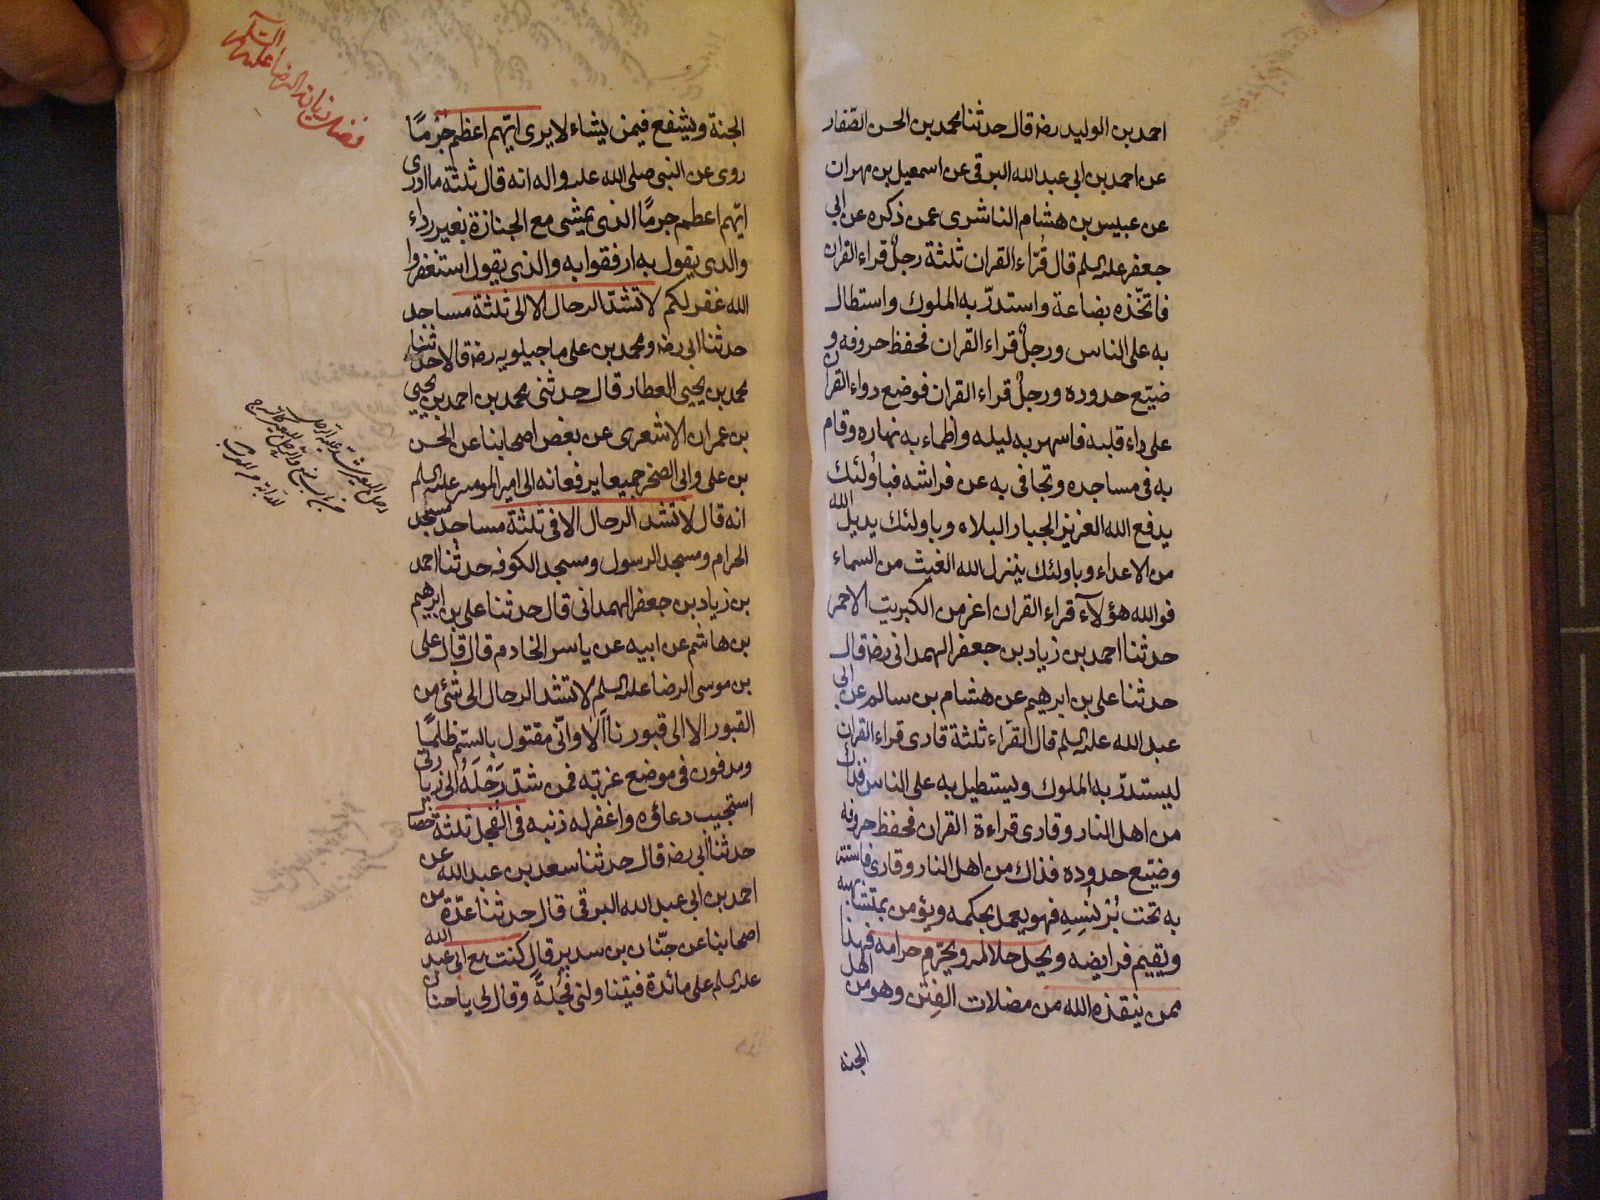 احمد بن الوليد رضه قال حدثنا محمد بن الحسن الصّفار
عن احمد بن ابى عبد الله البرقى عن اسمعيل بن مهران
عن عبيس بن هشام الناشرى عمن ذكره عن ابى
جعفر عليه السلم قال قُرّاء القران ثلثة رجلٌ قراء القران
فاتخّذه بضاعة واستدرّ به الملوك واستطال
به على الناس ورجلٌ قراء القران فحفظ حروفه و
ضيّع حدوده ورجلٌ قراء القران فوضع دواء القران
على داء قلبه فاسهر به ليله واظماء به نهاره وقام
به فى مساجده وتجافى به عن فراشه فباُولئك
يدفع الله العزيز الجبار البلاء وباولئك يديل الله
من الاعداء وباولئك ينزل الله الغيث من السماء
فوالله هؤلآء قراء القران اعز من الكبريت الاحمر
حدثنا احمد بن زياد بن جعفر الهمدانى رضه قال
حدثنا على بن ابرهيم عن هشام بن سالم عن ابى
عبد الله عليه السلم قال القراء ثلثة قارى قراء القران
ليستدرّ به الملوك ويستطيل به على الناس فذاك
من اهل النار وقارى قراءة القران فحفظ حروفه
وضيّع حدوده فذاك من اهل النار وقارى فاستتر
به تحت بُرْنُسِهِ فهو يعمل بمحكمه ويؤمن بمتشابهه
ويقيم فرايضه ويحل حلاله ويحرّم حرامه فهذا
ممن ينقذه الله من مضلات الفِتَن وهو من اهل
الجنة
الجنة ويشفع فيمن يشاء لا يرى ايّهم اعظم جُرمًا
روى عن النبى صلى الله عليه واله انه قال ثلثة ما ادرى
ايّهم اعظم جرمًا الذى يمشى مع الجنازة بغير رداء
والذى يقول به ارفقوا به والذى يقول استغفروا
الله غفر لكم لا تشدّ الرحال الا الى ثلثة مساجد
حدثنا ابى رضه ومحمد بن على ماجيلويه رضه قالا حدثنا
محمد بن يحيى العطار قال حدثنى محمد بن احمد بن يحيى
بن عمران الاشعرى عن بعض اصحابنا عن الحسن
بن على وابى الصخر جميعا يرفعانه الى امير المومنين عليه السلم
انه قال لا تشد الرحال الا فى ثلثة مساجد مسجد
الحرام ومسجد الرسول ومسجد الكوفه حدثنا احمد
بن زياد بن جعفر الهمدانى قال حدثنا على بن ابرهيم
بن هاشم عن ابيه عن ياسر الخادم قال قال على
بن موسى الرضا عليه السلم لا تشد الرحال الى شئ من
القبور الا الى قبورنا اَلا وانّى مقتول بالسّم ظلمًا
ومدفون فى موضع غربته فمن شدّ رَحْلَهُ الى زيارتى
استجيب دعاؤه واغفر له ذنبه فى الفجل ثلثة خصال
حدثنا ابى رضه قال حدثنا سعد بن عبد الله عن
احمد بن ابى عبد الله البرقى قال حدثنا عدّة من
اصحابنا عن حنّان بن سدير قال كنت مع ابى عبد الله
عليه السلم على مائدة فيتنا ولنى فُجُلَةً وقال لى يا حنان
فضل زيارة الرضا عليه السلم